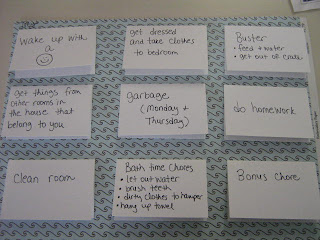 Wake up with
a
get dressed
and take clothes
to bedroom
Buster
• feed & water
• get out of crate
get things from
other rooms in
the house that
belong to you
garbage
(Monday &
Thursday)
do homework
Clean room
Bath time Chores
• let out water
• brush teeth
• dirty clothes to hamper
• hang up towel
Bonus Chore